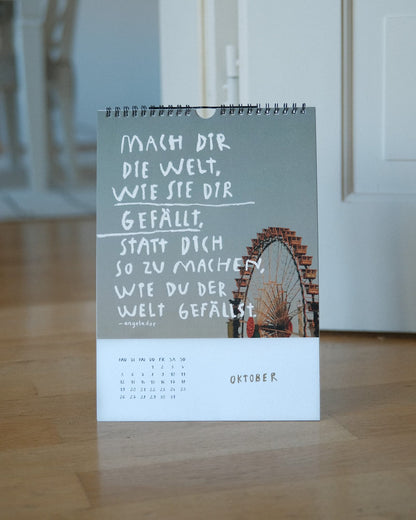 MACH DIR
DIE WELT,
WIE SIE DIR
GEFÄLLT,
STATT DICH
SO ZU MACHEN,
WIE DU DER
WELT GEFÄLLST.
–angeladoe
MO DI MI DO FR SA SO
1 2 3 4
5 6 7 8 9 10 11
12 13 14 15 16 17 18
19 20 21 22 23 24 25
26 27 28 29 30 31
OKTOBER